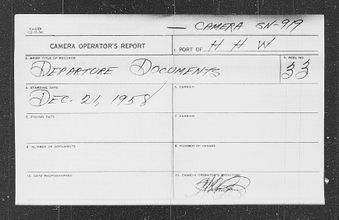 CAMERA SN-919
CAMERA OPERATOR'S REPORT
1. PORT OF H H W
2. BRIEF TITLE OF RECORDS
DEPARTURE DOCUMENTS
3. REEL NO.
33
4. STARTING DATE
DEC. 21, 1958
5. CARRIER
6. ENDING DATE
7. CARRIER
8. NUMBER OF DOCUMENTS
9. NUMBER OF IMAGES
10. DATE PHOTOGRAPHED
11. CAMERA OPERATOR'S SIGNATURE